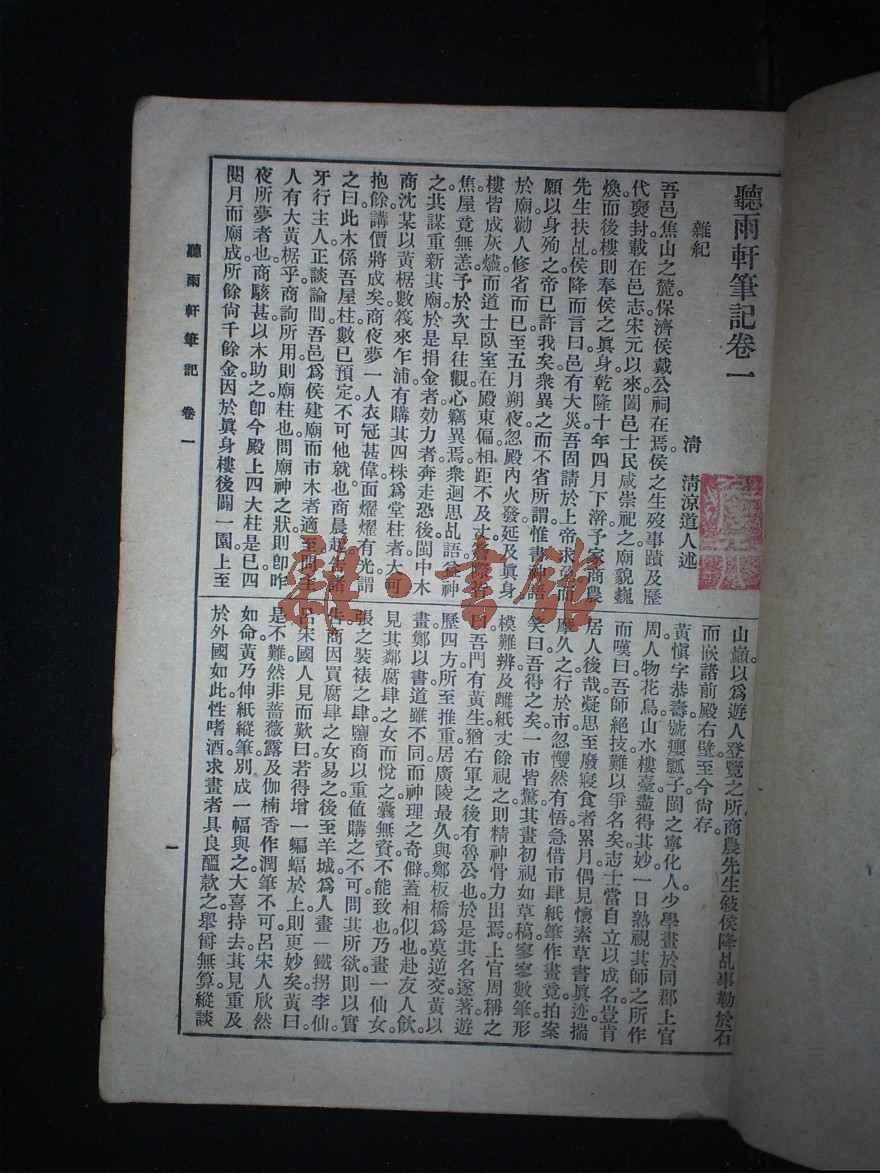 聽雨軒筆記卷一
清 清涼道人述
雜紀
吾邑焦山之麓。保濟侯戴公祠在焉。侯之生歿事蹟及歷
代褒封載在邑志。宋元以來。闔邑士民咸崇祀之。廟貌巍
煥。而後樓則奉侯之眞身。乾隆十年四月下澣。予家商農
先生扶乩。侯降而言曰。邑有大災。吾固請於上帝求免。而
願以身殉之。帝已許我矣。衆異之而不省所謂。惟書神語
於廟。勸人修省而已。至五月朔夜。忽殿內火發。延及眞身
樓。皆成灰燼。而道士臥室在殿東偏。相距不及丈
焦屋竟無恙。予於次早往觀。心竊異焉。衆迴思乩語。益神
之。共謀重新其廟。於是捐金者効力者奔走恐後。閩中木
商沈某以黃椐數筏來乍浦。有購其四株爲堂柱者。大可
抱餘。講價將成矣。商夜夢一人。衣冠甚偉。面燿燿有光。謂
之曰。此木係吾屋柱。數已預定。不可他就也。商晨起告諸
牙行主人。正談論間。吾邑爲侯建廟而市木者適至。問主
人有大黃椐乎。商詢所用。則廟柱也。問廟神之狀。則卽昨
夜所夢者也。商駭甚。以木助之。卽今殿上四大柱是已。四
閱月而廟成。所餘尙千餘金。因於眞身樓後闢一園。上至
山巔。以爲遊人登覽之所。商農先生敍侯降乩事。勒於石
而嵌諸前殿右壁。至今尙存。
黃愼字恭壽。號癭瓢子。閩之寧化人。少學畫於同郡上官
周。人物花鳥山水樓臺。盡得其妙。一日熟視其師之所作
而嘆曰。吾師絕技難以爭名矣。志士當自立以成名。豈肯
居人後哉。凝思至廢寢食者累月。偶見懷素草書眞迹。揣
摩久之。行於市。忽戄然有悟。急借市肆紙筆作畫。竟拍案
笑曰。吾得之矣。一市皆驚。其畫初視如草稿。寥寥數筆。形
模難辨。及離紙丈餘視之。則精神骨力出焉。上官周稱之
曰。吾門有黃生。猶右軍之後有魯公也。於是其名遂著。遊
歷四方。所至推重。居廣陵最久。與鄭板橋爲莫逆交。黃以
畫。鄭以書。道雖不同。而神理之奇僻。蓋相似也。赴友人飲。
見其鄰腐肆之女而悅之。囊無資。不能致也。乃畫一仙女。
張之裝裱之肆。鹽商以重値購之。不可。問其所欲。則以實
告。商因買腐肆之女易之。後至羊城。爲人畫一鐵拐李仙。
呂宋國人見而歎曰。若得增一蝙蝠於上則更妙矣。黃曰
是不難。然非薔薇露及伽楠香作潤筆不可。呂宋人欣然
如命。黃乃伸紙縱筆。別成一幅與之。大喜持去。其見重及
於外國如此。性嗜酒。求畫者具良醞款之。舉爵無算。縱談
聽雨軒筆記 卷一
一
雜·書館